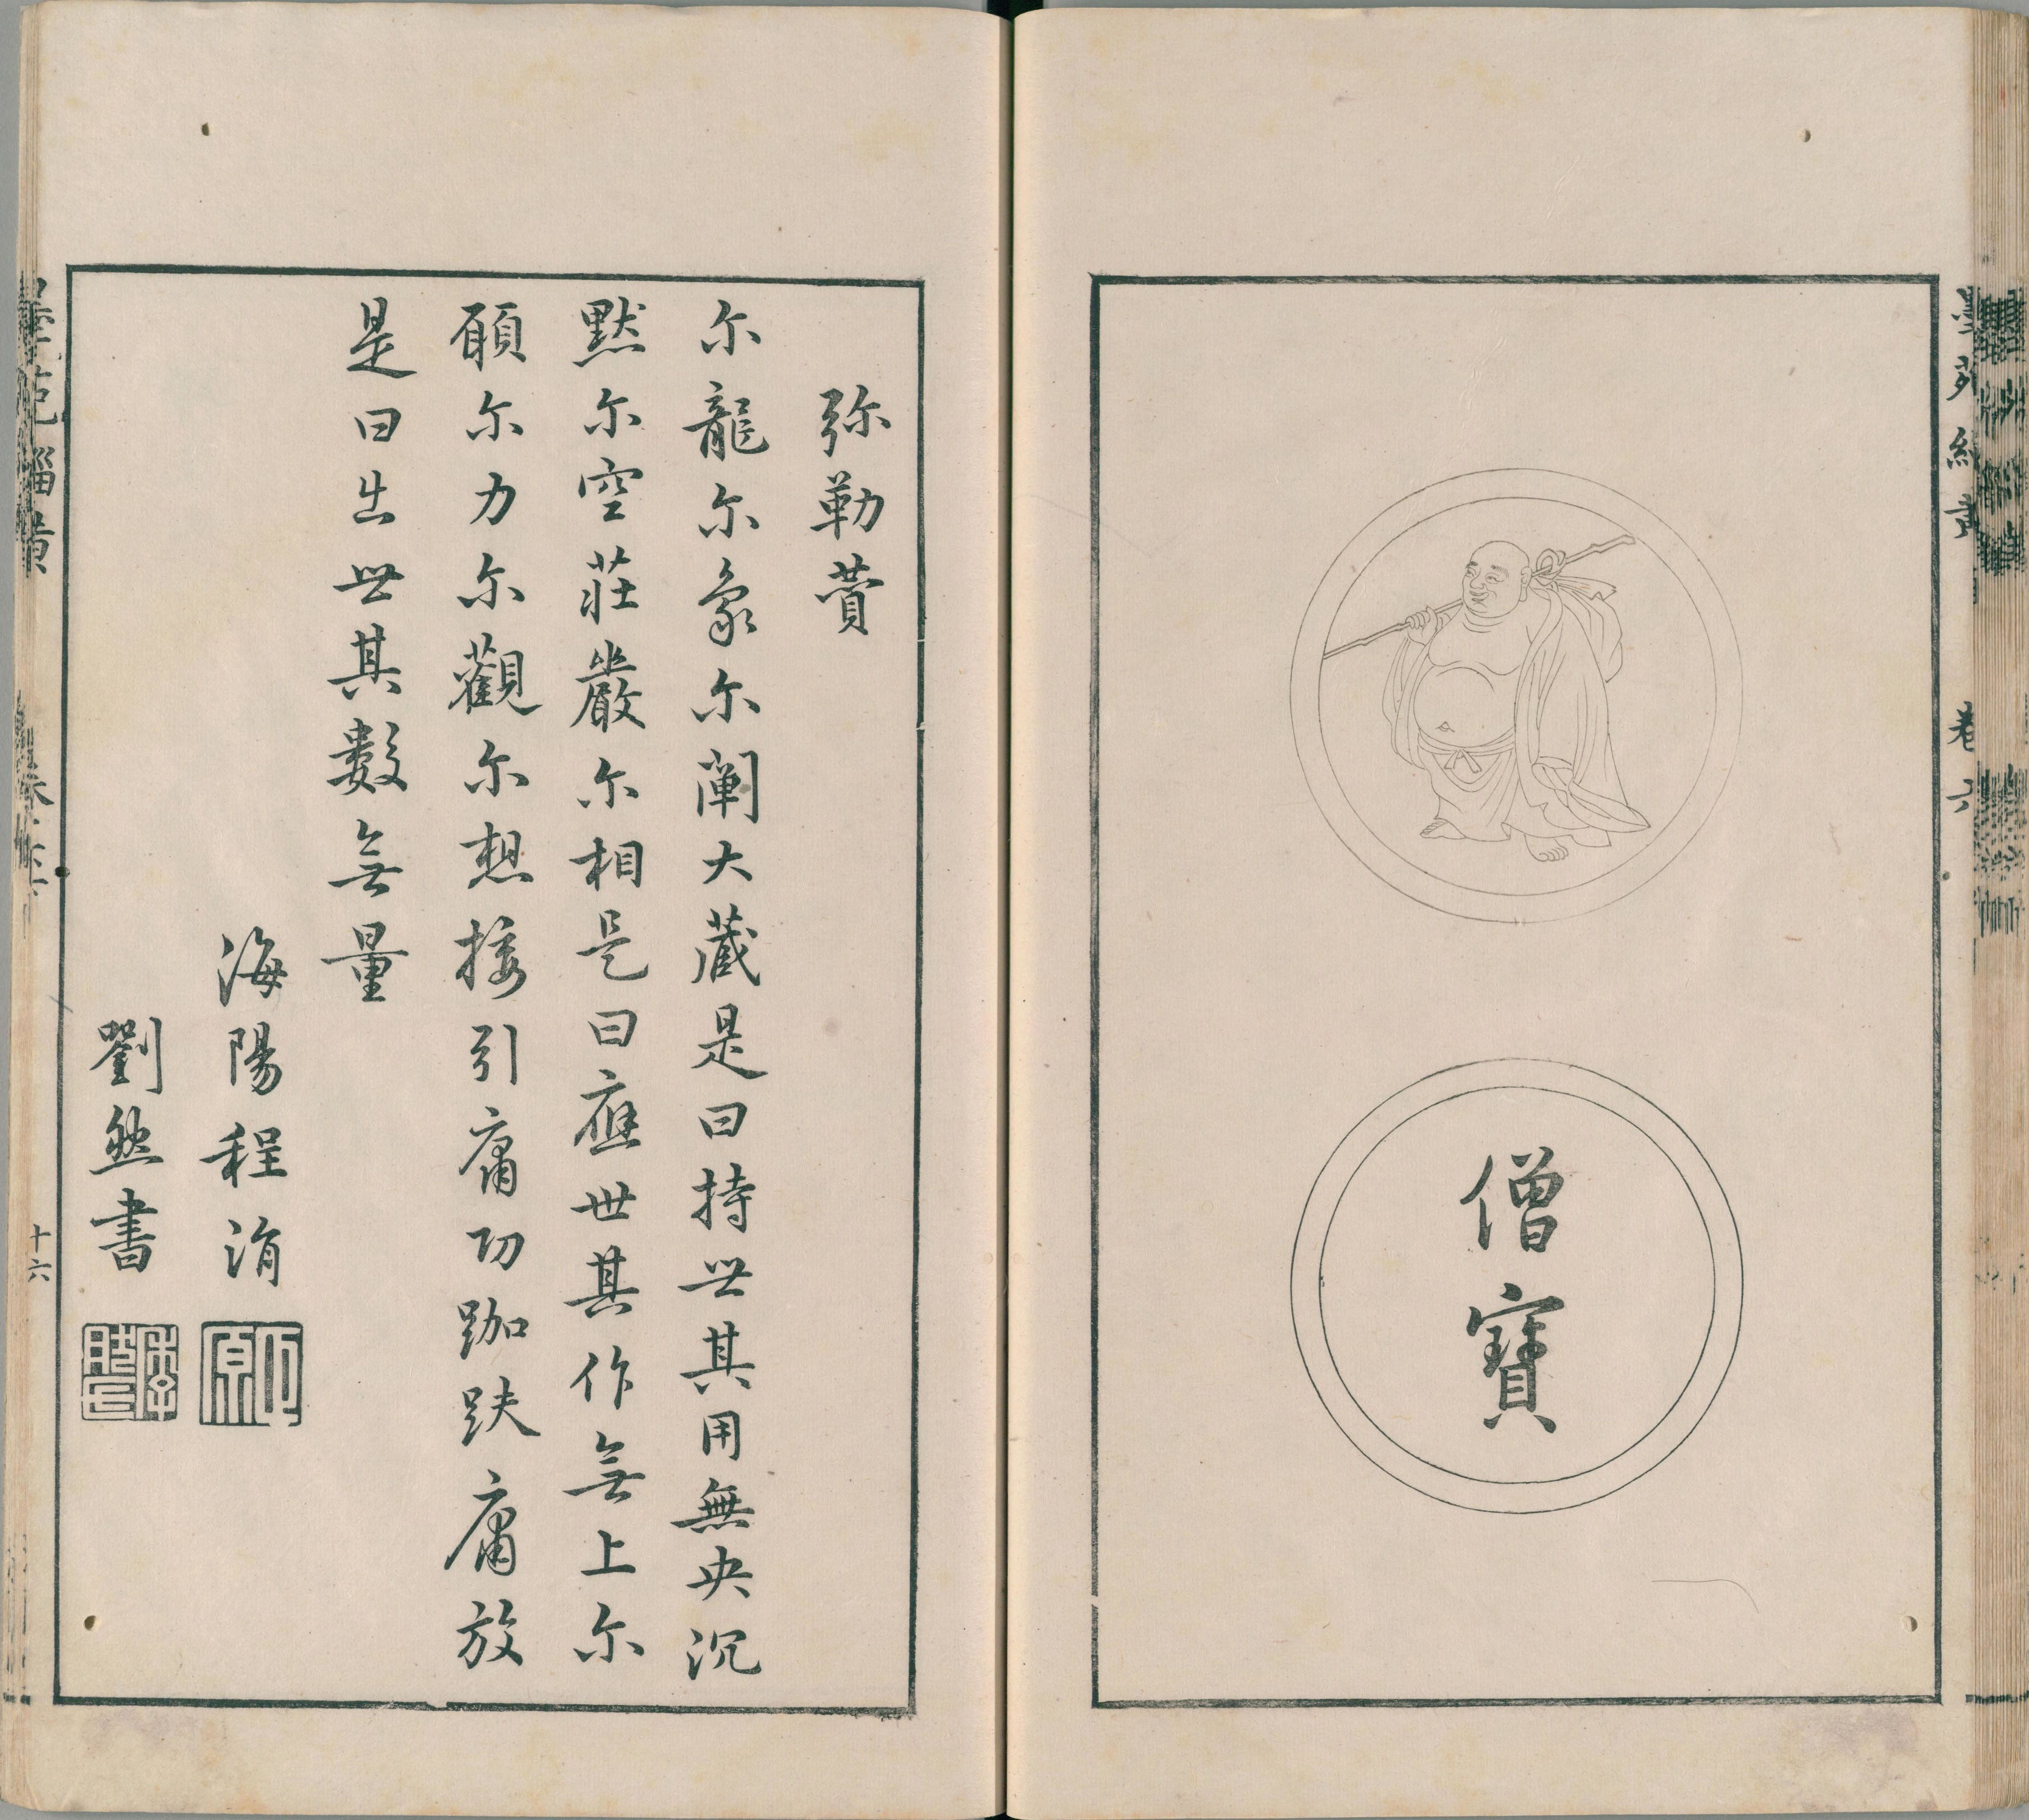 僧寶
卷六
弥勒賛
尓龍尓象尓闡大藏是曰持世其用無央沉
默尓空莊嚴尓相是曰應世其作無上尓
願尓力尓觀尓想接引庸功跏趺庸放
是曰出世其數無量
海陽程涓
劉然書
十六